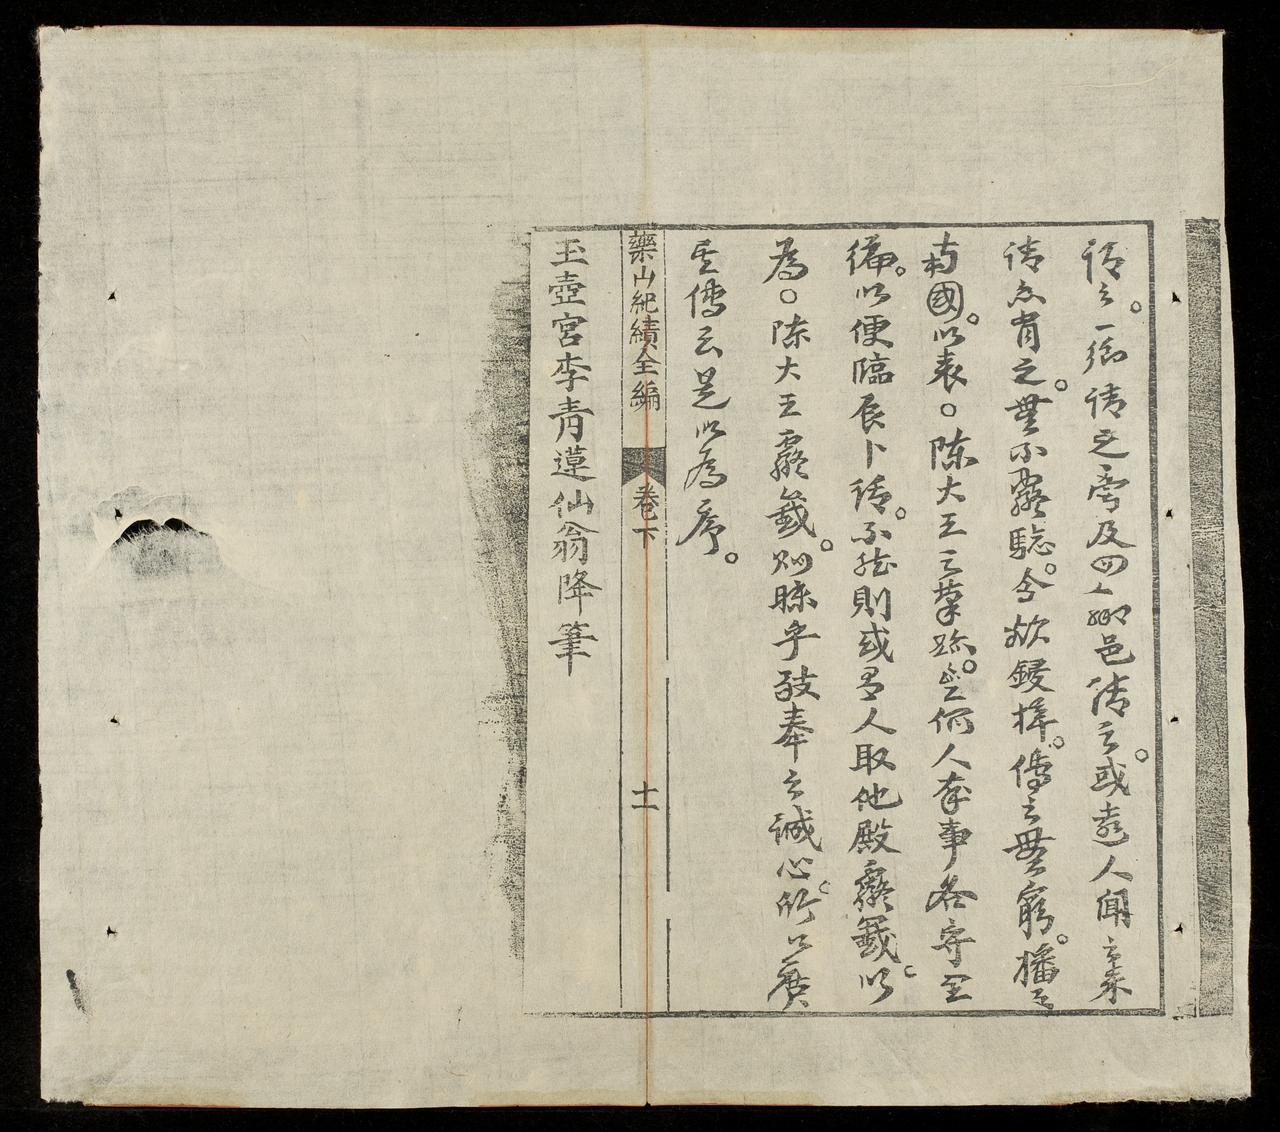 請之。一鄉請之。旁及四鄉邑請之。或遠人聞之來
請亦有之。無不靈驗。今欲鋟梓。傳之無窮。播之
南國。以表。陳大王之蹟。豈何人奉事各守全
編。以便臨辰卜請。不然則或有人取他殿靈籤。以
為。陳大王靈籤。則昧乎敬奉之誠心。所以廣
其傳云是以為序。
藥山紀績全編 卷下 十一
玉壺宮李青蓮仙翁降筆